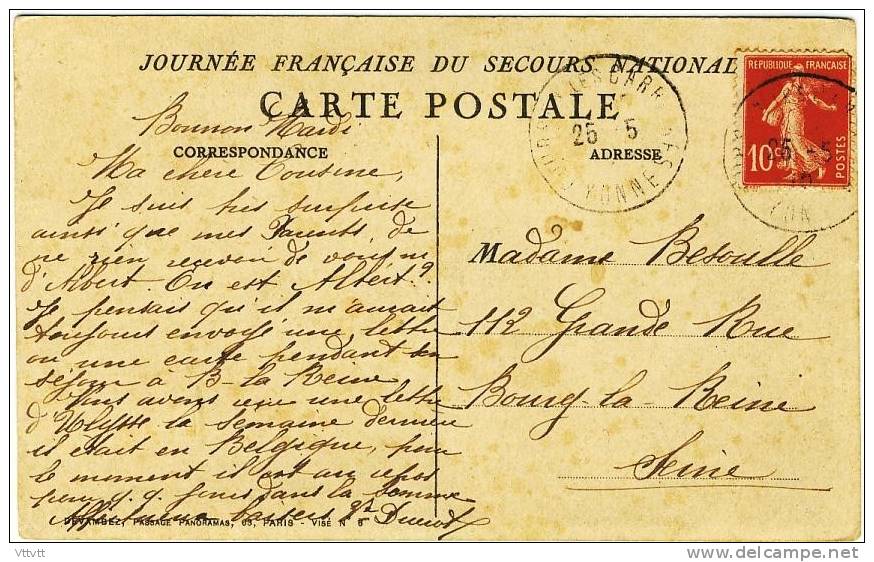 JOURNÉE FRANÇAISE DU SECOURS NATIONAL
CARTE POSTALE
CORRESPONDANCE
ADRESSE
REPUBLIQUE FRANÇAISE
10c
POSTES
25 5
YONNE
25 5
YON
Mardi
Ma chère Cousine,
Je suis très surprise
ainsi que mes Parents, de
ne rien recevoir de vous ni
d'Albert Ou est Albert?
Je pensais qu'il m'aurait
toujours envoyé une lettre
ou une carte pendant son
séjour à B-la Reine
Nous avons une lettre
d'Ulysse la semaine dernière
il était en Belgique, pour
le moment il est au repos
pour q.q. jours dans la Somme
baisers
Madame Besoulle
112 Grande Rue
Bourg-la-Reine
Seine
DEVAMBEZ, PASSAGE PANORAMAS, 63, PARIS - VISÉ N° 6
Vttvtt
www.delcampe.net